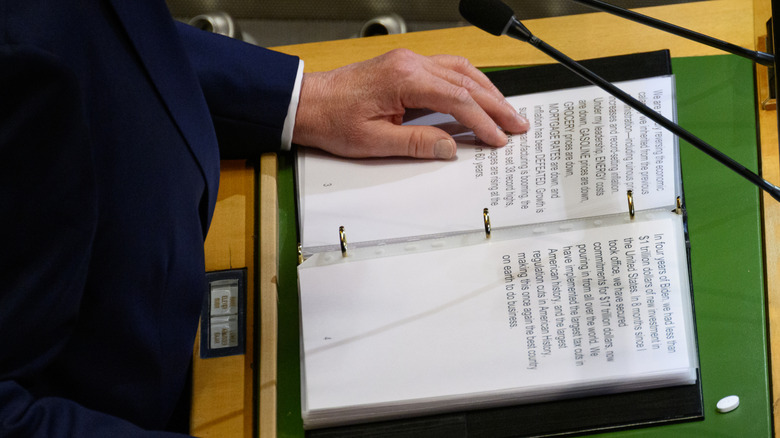 We are reversing the economic
we inherited from the previous
administration—including ruinous
increases and record-setting inflation
Under my leadership, ENERGY costs
are down, GASOLINE prices are down,
GROCERY prices are down,
MORTGAGE RATES are down and
inflation has been DEFEATED. Growth is
manufacturing is booming, the
has set 36 record highs,
wages are rising at the
in 60 years.
3
In four years of Biden, we had less than
$1 trillion dollars of new investment in
the United States. In 8 months since I
took office, we have secured
commitments for $17 trillion dollars, now
pouring in from all over the world. We
have implemented the largest tax cuts in
American history, and the largest
regulation cuts in American History,
making this once again the best country
on earth to do business.
4